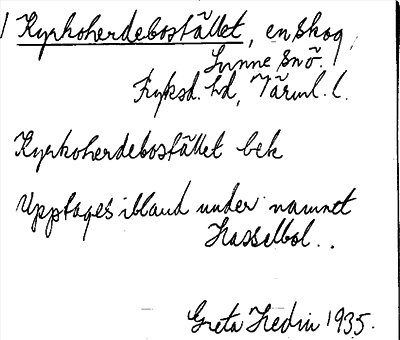 Kyrkoherdebostället, en skog,
Sunne snö.
Fryksd. hd, Värml. l.
Kyrkoherdebostället bek
Upptages ibland under namnet
Hasselbol..
Greta Hedin 1935.